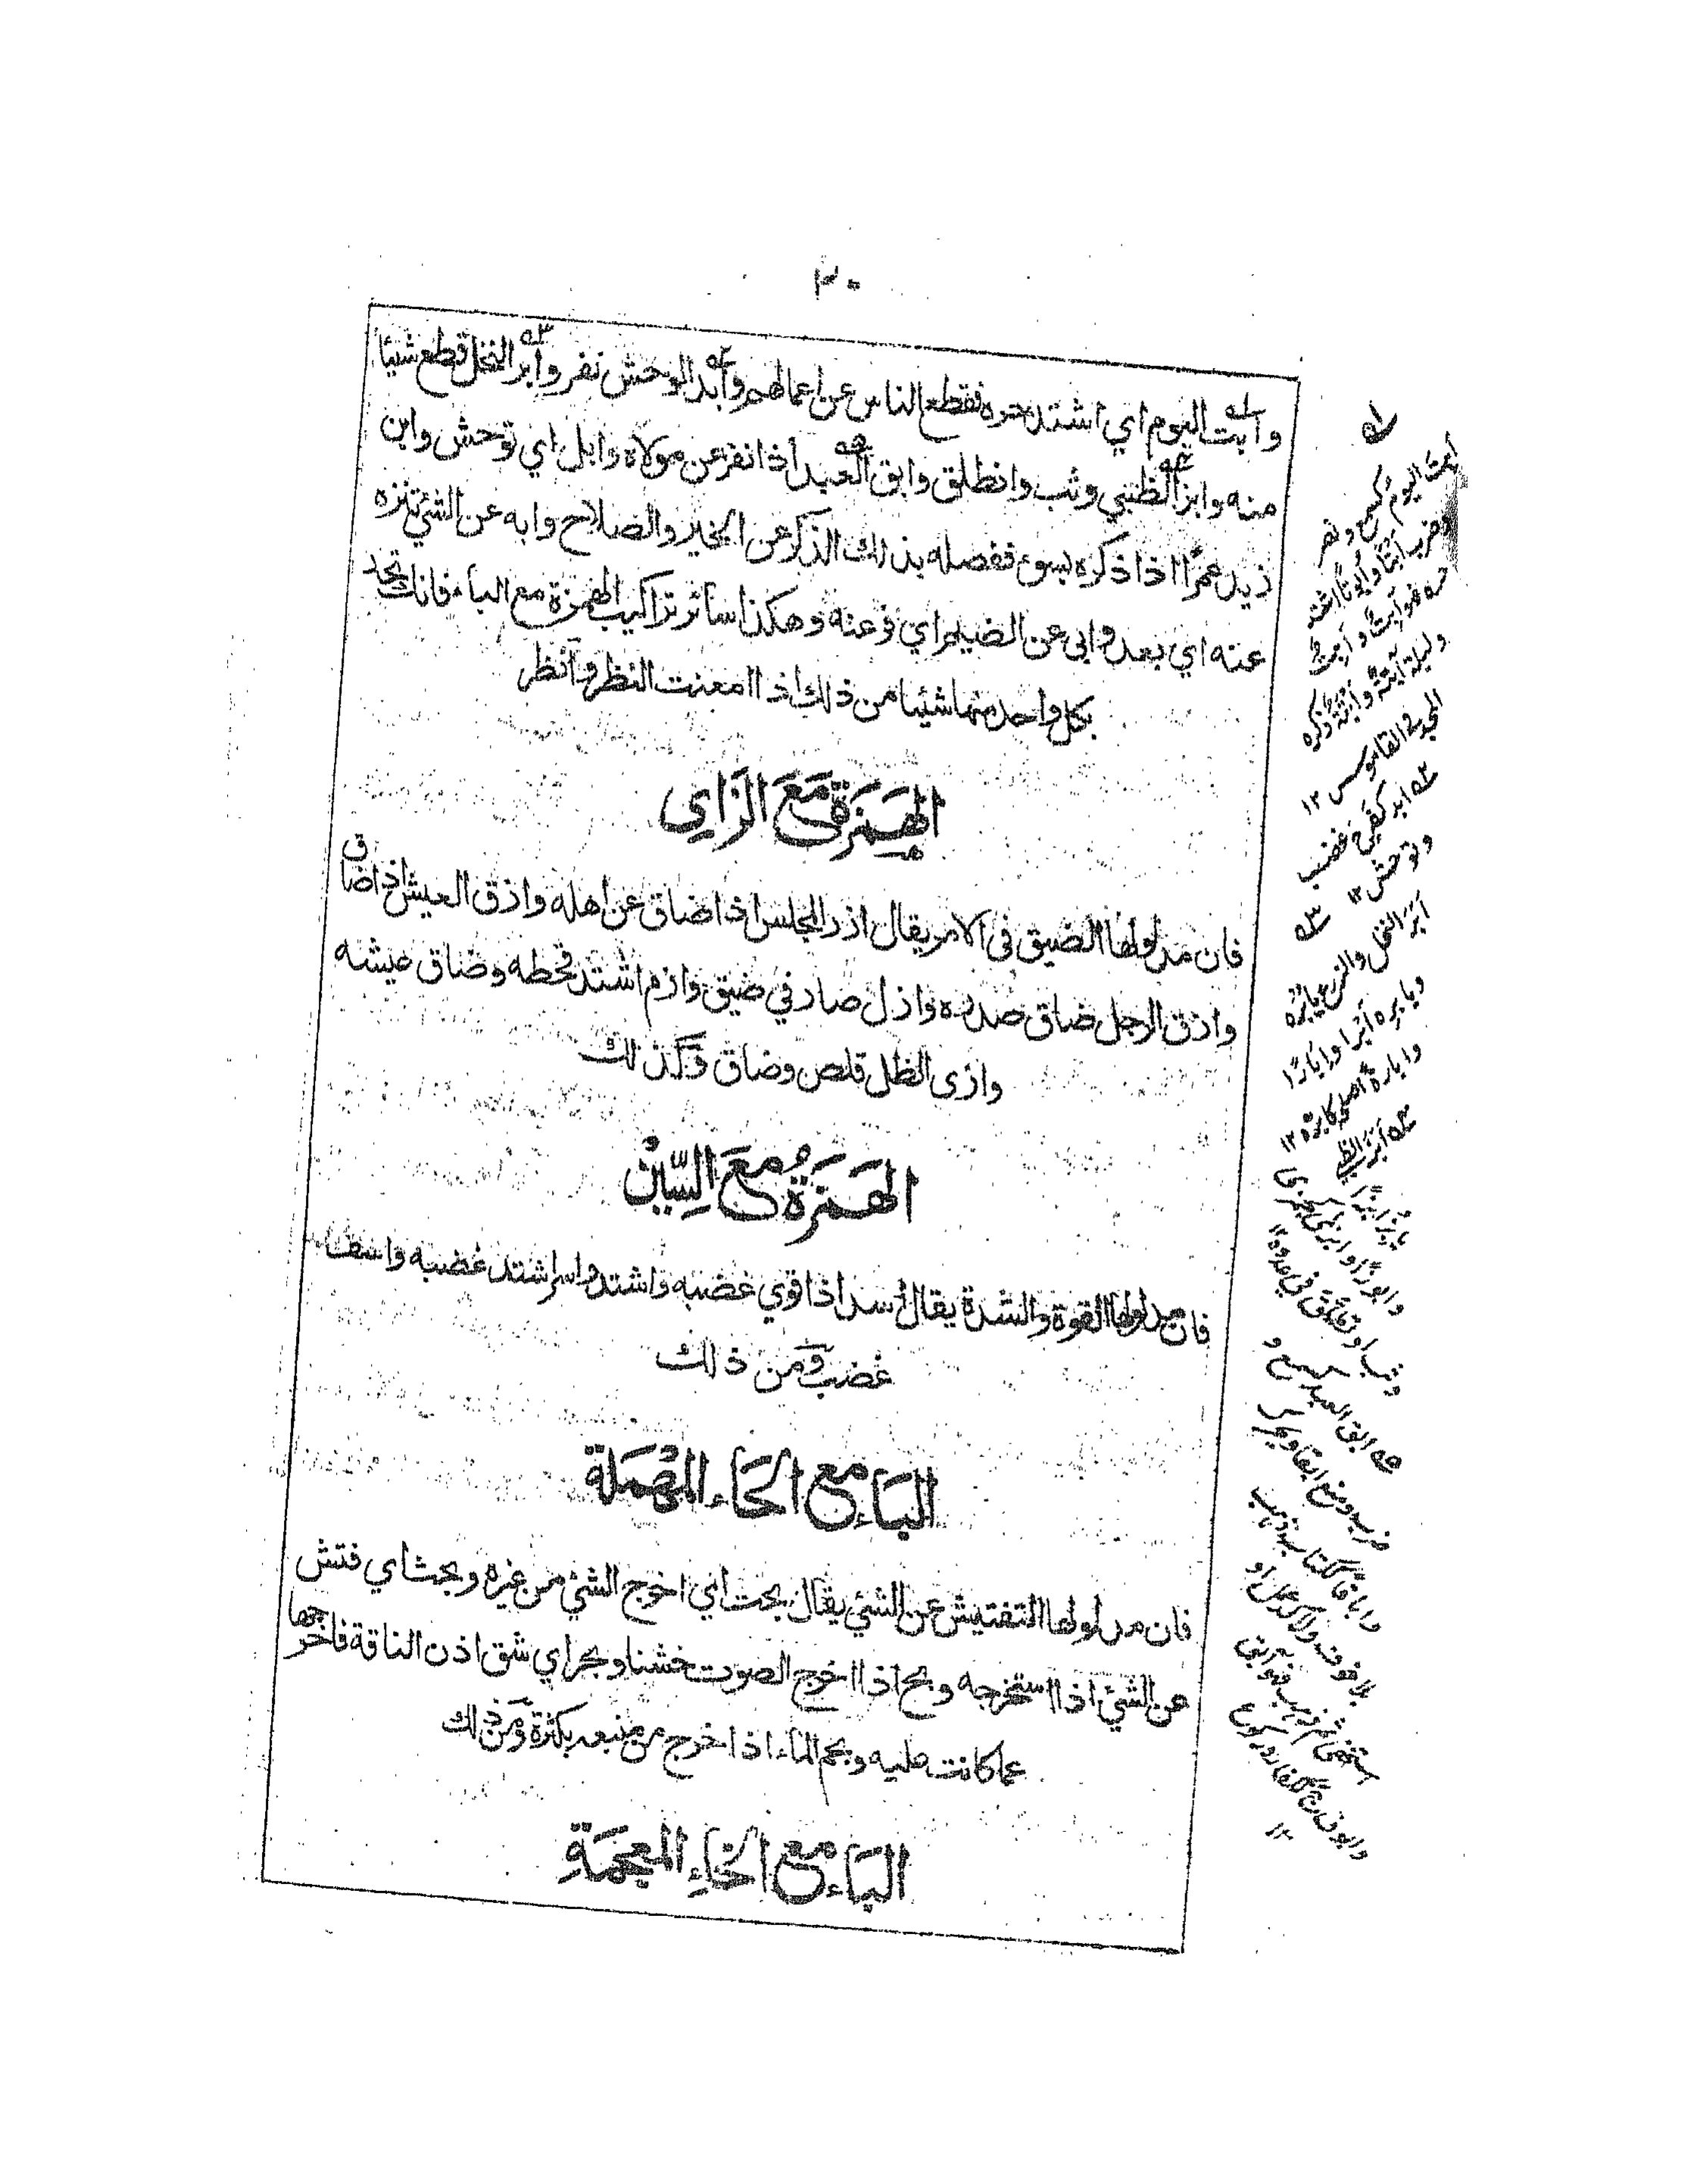 ٣٠
وابت اليوم اي اشتد حره فقطع الناس عن اعمالهم وابد الوحش نفر وابر النخل قطع شيئا
منه وابز الظبي وثب وانطلق وابق العبد اذا نفر عن مولاه وابل اي توحش وابن
زيد عمرًا اذا ذكره بسوء ففصله بذلك الذكر عن الخير والصلاح وابه عن الشيء تنزه
عنه اي بعد وابى عن الضيم اي فر عنه وهكذا سائر تراكيب الهمزة مع الباء فانك تجد
بكل واحد منها شيئا من ذلك اذا امعنت النظر وانظر
الهَمزَة مَعَ الزَاي
فان مدلولها الضيق فى الامر يقال ازر المجلس اذا ضاق عن اهله وازق العيش اذا ضاق
وازق الرجل ضاق صدره وازل صار في ضيق وازم اشتد قحطه وضاق عيشه
وازى الظل قلص وضاق وَكذلك
الهَمزَةُ معَ السِّيْن
فان مدلولها القوة والشدة يقال أسد اذا قوي غضبه واشتد واسر اشتد غضبه واسف
غضب وَمن ذلك
البَاء مع الحَاء المُهمَلَة
فان مدلولها التفتيش عن الشيء يقال بحت اي اخرج الشيء من غيره وبحث اي فتش
عن الشيء اذا استخرجه وبح اذا اخرج الصوت خشنا وبحر اي شق اذن الناقة فاخرجها
عما كانت عليه وبحم الماء اذا خرج من منبعه بكثرة وَمن ذلك
البَاء مع الخَاءِ المعجمَةِ
١ه
ابت اليوم كسمع ونصر
وضرب ابتًا وأبوتًا اشتد
حره فهو آبت وابت
وليلة آبتة وابتة ذكره
المجد في القاموس ١٢
٢ه ابد كفرح غضب
وتوحش ١٢
٣ه
أبَرَ النخل والزرع يابُره
ويابِره أبْرا وإبارًا
وإبارة اصلحه كابّره ١٢
٤ه أبَزَ الظبي
يابِز ابزًا
وابوزًا وابزى كجمزى
وثب او تطلق في عدوه ١٢
٥ه ابق العبد كسمع و
ضرب ومنع ابقا ويحرك
واباقًا ككتاب ذهب
بلا خوف ولا كد عمل او
استخفى ثم ذهب فهو آبق
وابوق ج ككفار وركع
١٢